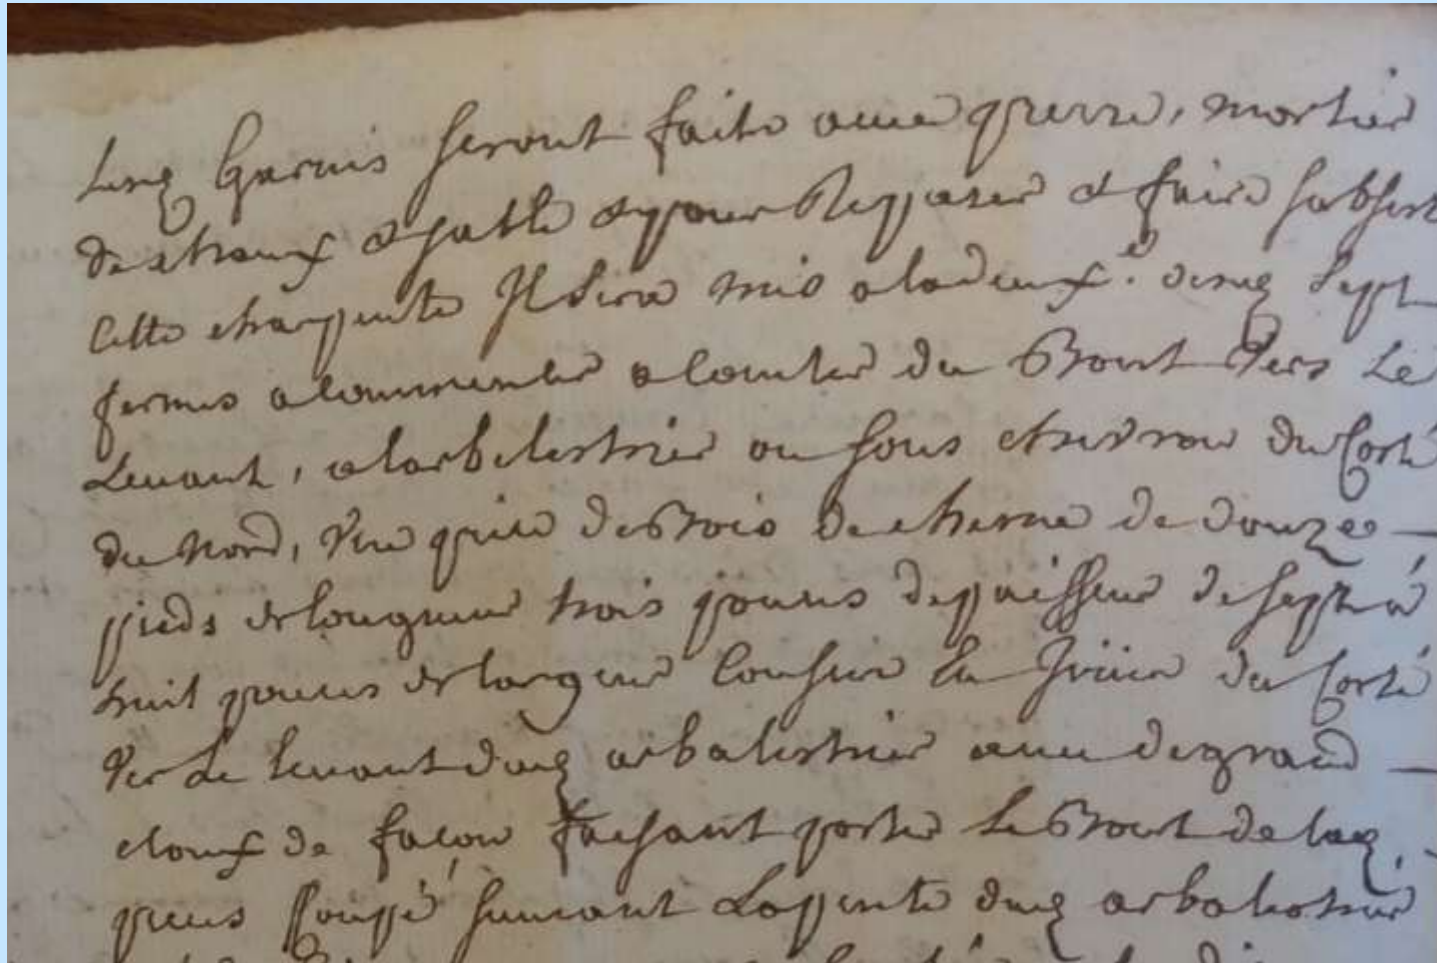 Lesq garnis seront faits avec pierre, mortier
de chaux et sable et pour Repparer et faire subsist
Cette charpente Il sera mis a la deux.e desq sept
fermes a commencer a conter du Bout vers Le
Levant, a larbalestrier ou sous chevron du Costé
du Nord, Une piece de Bois de chesne de douze
pieds de longueur trois pouces depaisseur de sept a
huit pouces de largeur Cousue en du Costé
Vers Le levant dudq arbalestrier avec de grand
cloux de façon faisant porter Le Bout de lad
piece Coupé suivant La pente dudq arbalestrier